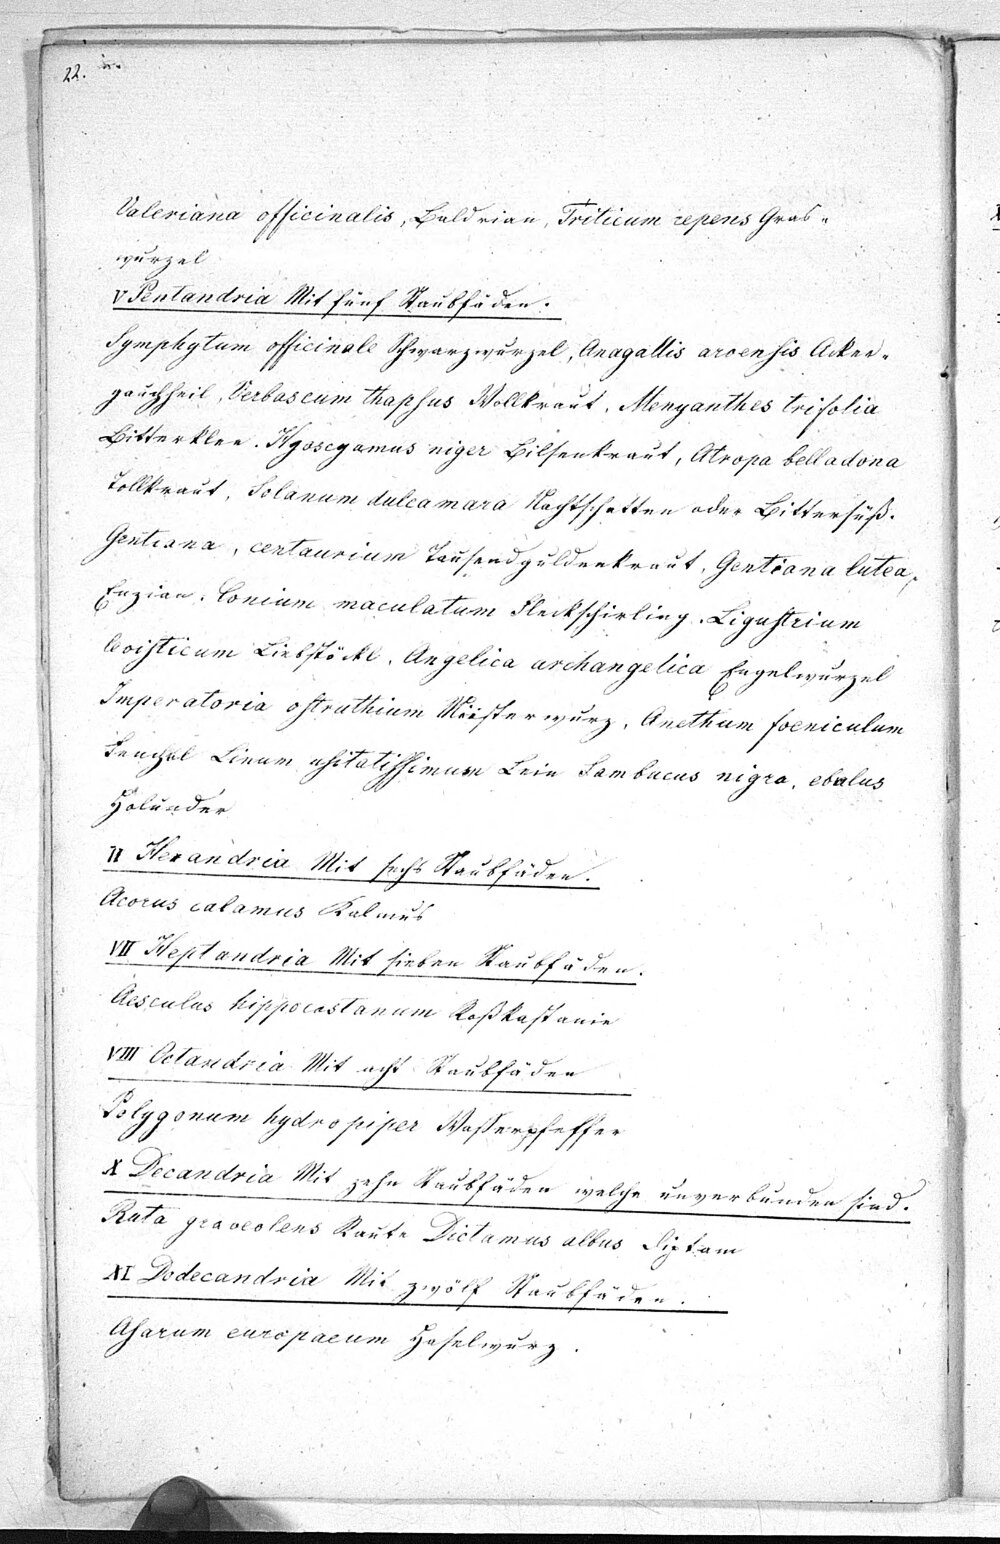 22.
Valeriana officinalis, Baldrian, Triticum repens Gras-
wurzel
V Pentandria Mit fünf Staubfäden.
Symphytum officinale Schwarzwurzel, Anagallis arvensis Acker-
gauchheil, Verbascum thapsus Wollkraut, Menyanthes trifolia
Bitterklee. Hyoscyamus niger Bilsenkraut, Atropa belladona
Tollkraut, Solanum dulcamara Nachtschatten oder Bittersüß.
Gentiana, centaurium Tausendguldenkraut, Gentiana lutea,
Enzian. Conium maculatum Fleckschirling. Ligustrium
levisticum Liebstöckl, Angelica archangelica Engelwurzel
Imperatoria ostruthium Meisterwurz, Anethum foeniculum
Fenchel Linum usitatissimum Lein Sambucus nigra, ebulus
Holunder
VI Hexandria Mit sechs Staubfäden.
Acorus calamus Kalmus
VII Heptandria Mit sieben Staubfäden.
Aesculus hippocastanum Roßkastanie
VIII Octandria Mit acht Staubfäden
Polygonum hydropiper Wasserpfeffer
X Decandria Mit zehn Staubfäden welche unverbunden sind.
Ruta graveolens Raute Dictamus albus Diptam
XI Dodecandria Mit zwölf Staubfäden.
Asarum europaeum Haselwurz.